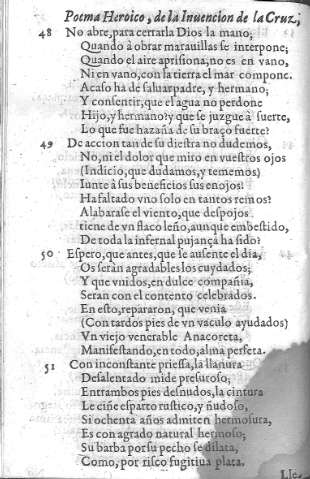 Poema Heroico, de la Inuencion de la Cruz,
48 No abre, para cerrarla Dios la mano;
Quando à obrar marauillas se interpone;
Quando el aire aprisiona, no es en vano,
Ni en vano, con la tierra el mar compone.
Acaso ha de saluar padre, y hermano;
Y consentir, que el agua no perdone
Hijo, y hermano? y que se juzgue à suerte,
Lo que fue hazaña de su braço fuerte?
49 De accion tan de su diestra no dudemos,
No, ni el dolor que miro en vuestros ojos
(Indicio, que dudamos, y tememos)
Iunte à sus beneficios sus enojos:
Ha faltado vno solo en tantos remos?
Alabarase el viento, que despojos
tiene de vn flaco leño, aunque embestido,
De toda la infernal pujança ha sido?
50 Espero, que antes, que se ausente el dia,
Os seràn agradables los cuydados;
Y que vnidos, en dulce compañia,
Seran con el contento celebrados.
En esto, repararon, que venia
(Con tardos pies de vn vaculo ayudados)
Vn viejo venerable Anacoreta,
Manifestando, en todo, alma perfeta.
51 Con inconstante priessa, la llanura
Desalentado mide presuroso;
Entrambos pies desnudos, la cintura
Le ciñe esparto rustico, y ñudoso,
Si ochenta años admiten hermosura,
Es con agrado natural hermoso;
Su barba por su pecho se dilata,
Como, por risco fugitiua plata.